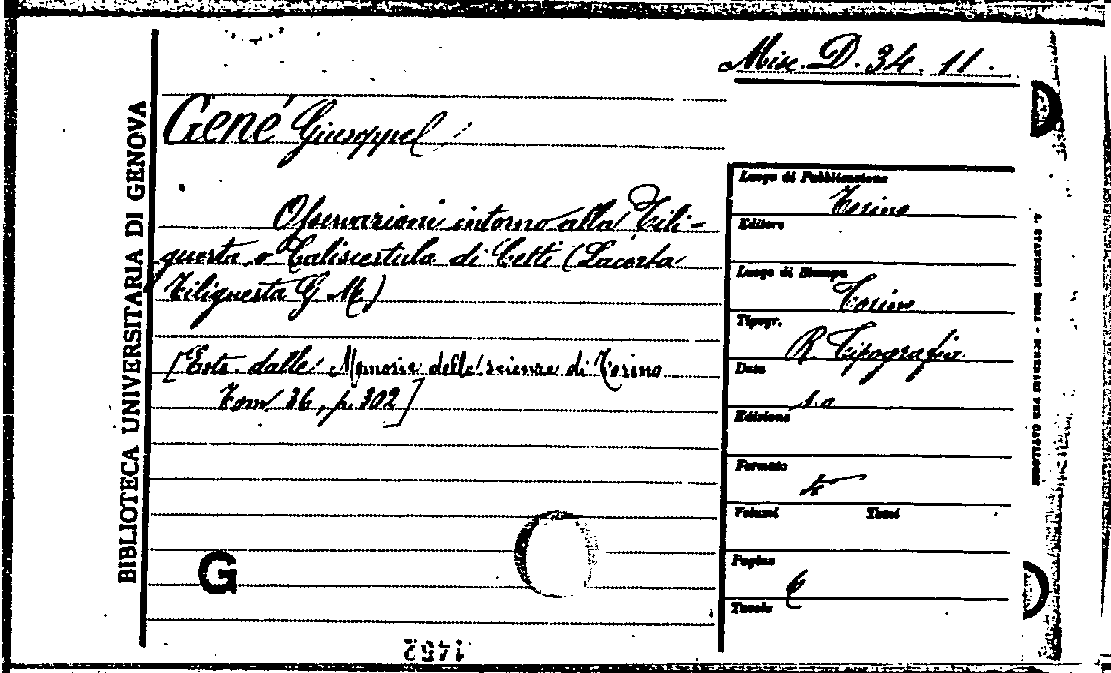 Misc. D. 34. 11.
BIBLIOTECA UNIVERSITARIA DI GENOVA
Gené Giuseppe
Osservazioni intorno alla Tili-
guerta o Caliscertula di Cetti (Lacerta
Tiliguerta G M.)
[Estr. dalle Memorie delle scienze di Torino
Tom 36, p. 302]
G
1452
Luogo di Pubblicazione
Torino
Editore
Luogo di Stampa
Torino
Tipogr.
R. Tipografia
Data
s. a
Edizione
Formato
4°
Volumi Tomi
Pagine
6
Tavole